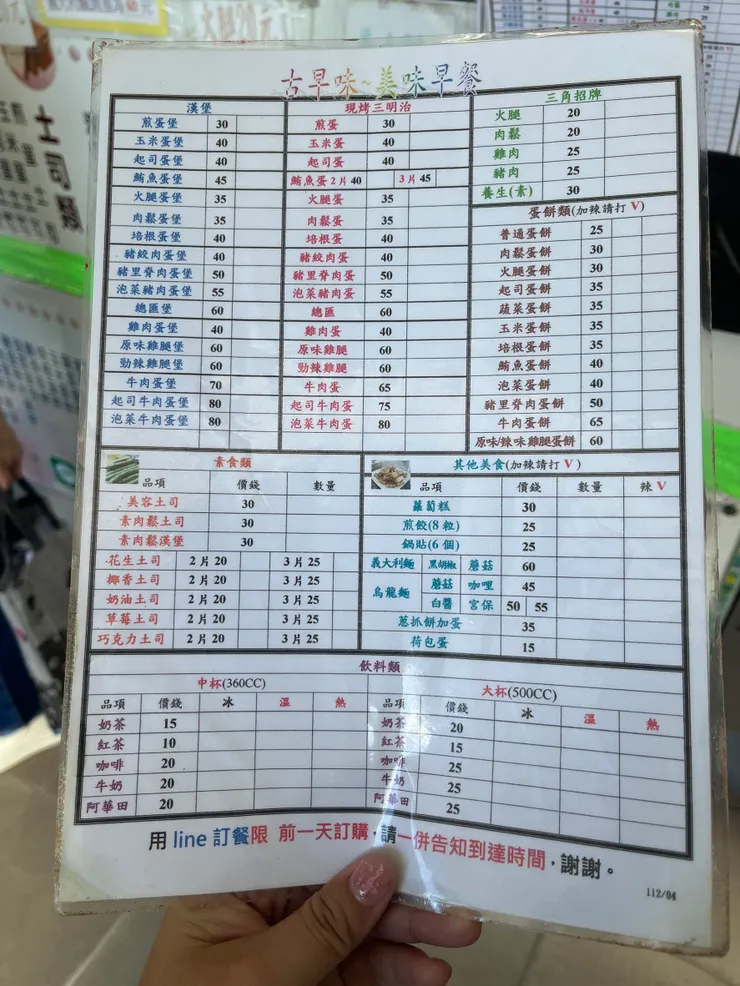 火腿20元
土司類
古早味~美味早餐
漢堡
煎蛋堡 30
玉米蛋堡 40
起司蛋堡 40
鮪魚蛋堡 45
火腿蛋堡 35
肉鬆蛋堡 35
培根蛋堡 40
豬絞肉蛋堡 40
豬里脊肉蛋堡 50
泡菜豬肉蛋堡 55
總匯堡 60
雞肉蛋堡 40
原味雞腿堡 60
勁辣雞腿堡 60
牛肉蛋堡 70
起司牛肉蛋堡 80
泡菜牛肉蛋堡 80
現烤三明治
煎蛋 30
玉米蛋 40
起司蛋 40
鮪魚蛋 2 片 40 3 片 45
火腿蛋 35
肉鬆蛋 35
培根蛋 40
豬絞肉蛋 40
豬里脊肉蛋 50
泡菜豬肉蛋 55
總匯 60
雞肉蛋 40
原味雞腿 60
勁辣雞腿 60
牛肉蛋 65
起司牛肉蛋 75
泡菜牛肉蛋 80
三角招牌
火腿 20
肉鬆 20
雞肉 25
豬肉 25
養生(素) 30
蛋餅類(加辣請打 V)
普通蛋餅 25
肉鬆蛋餅 30
火腿蛋餅 30
起司蛋餅 35
蔬菜蛋餅 35
玉米蛋餅 35
培根蛋餅 35
鮪魚蛋餅 40
泡菜蛋餅 40
豬里脊肉蛋餅 50
牛肉蛋餅 65
原味/辣味雞腿蛋餅 60
素食類
品項 價錢 數量
美容土司 30
素肉鬆土司 30
素肉鬆漢堡 30
花生土司 2 片 20 3 片 25
椰香土司 2 片 20 3 片 25
奶油土司 2 片 20 3 片 25
草莓土司 2 片 20 3 片 25
巧克力土司 2 片 20 3 片 25
其他美食(加辣請打 V )
品項 價錢 數量 辣 V
蘿蔔糕 30
煎餃(8 粒) 25
鍋貼(6 個) 25
義大利麵 黑胡椒 蘑菇 60
烏龍麵 蘑菇 咖哩 45
白醬 宮保 50 55
蔥抓餅加蛋 35
荷包蛋 15
飲料類
中杯(360CC)
品項 價錢 冰 溫 熱
奶茶 15
紅茶 10
咖啡 20
牛奶 20
阿華田 20
大杯(500CC)
品項 價錢 冰 溫 熱
奶茶 20
紅茶 15
咖啡 25
牛奶 25
阿華田 25
用 line 訂餐限 前一天訂購，請一併告知到達時間，謝謝。
112/04